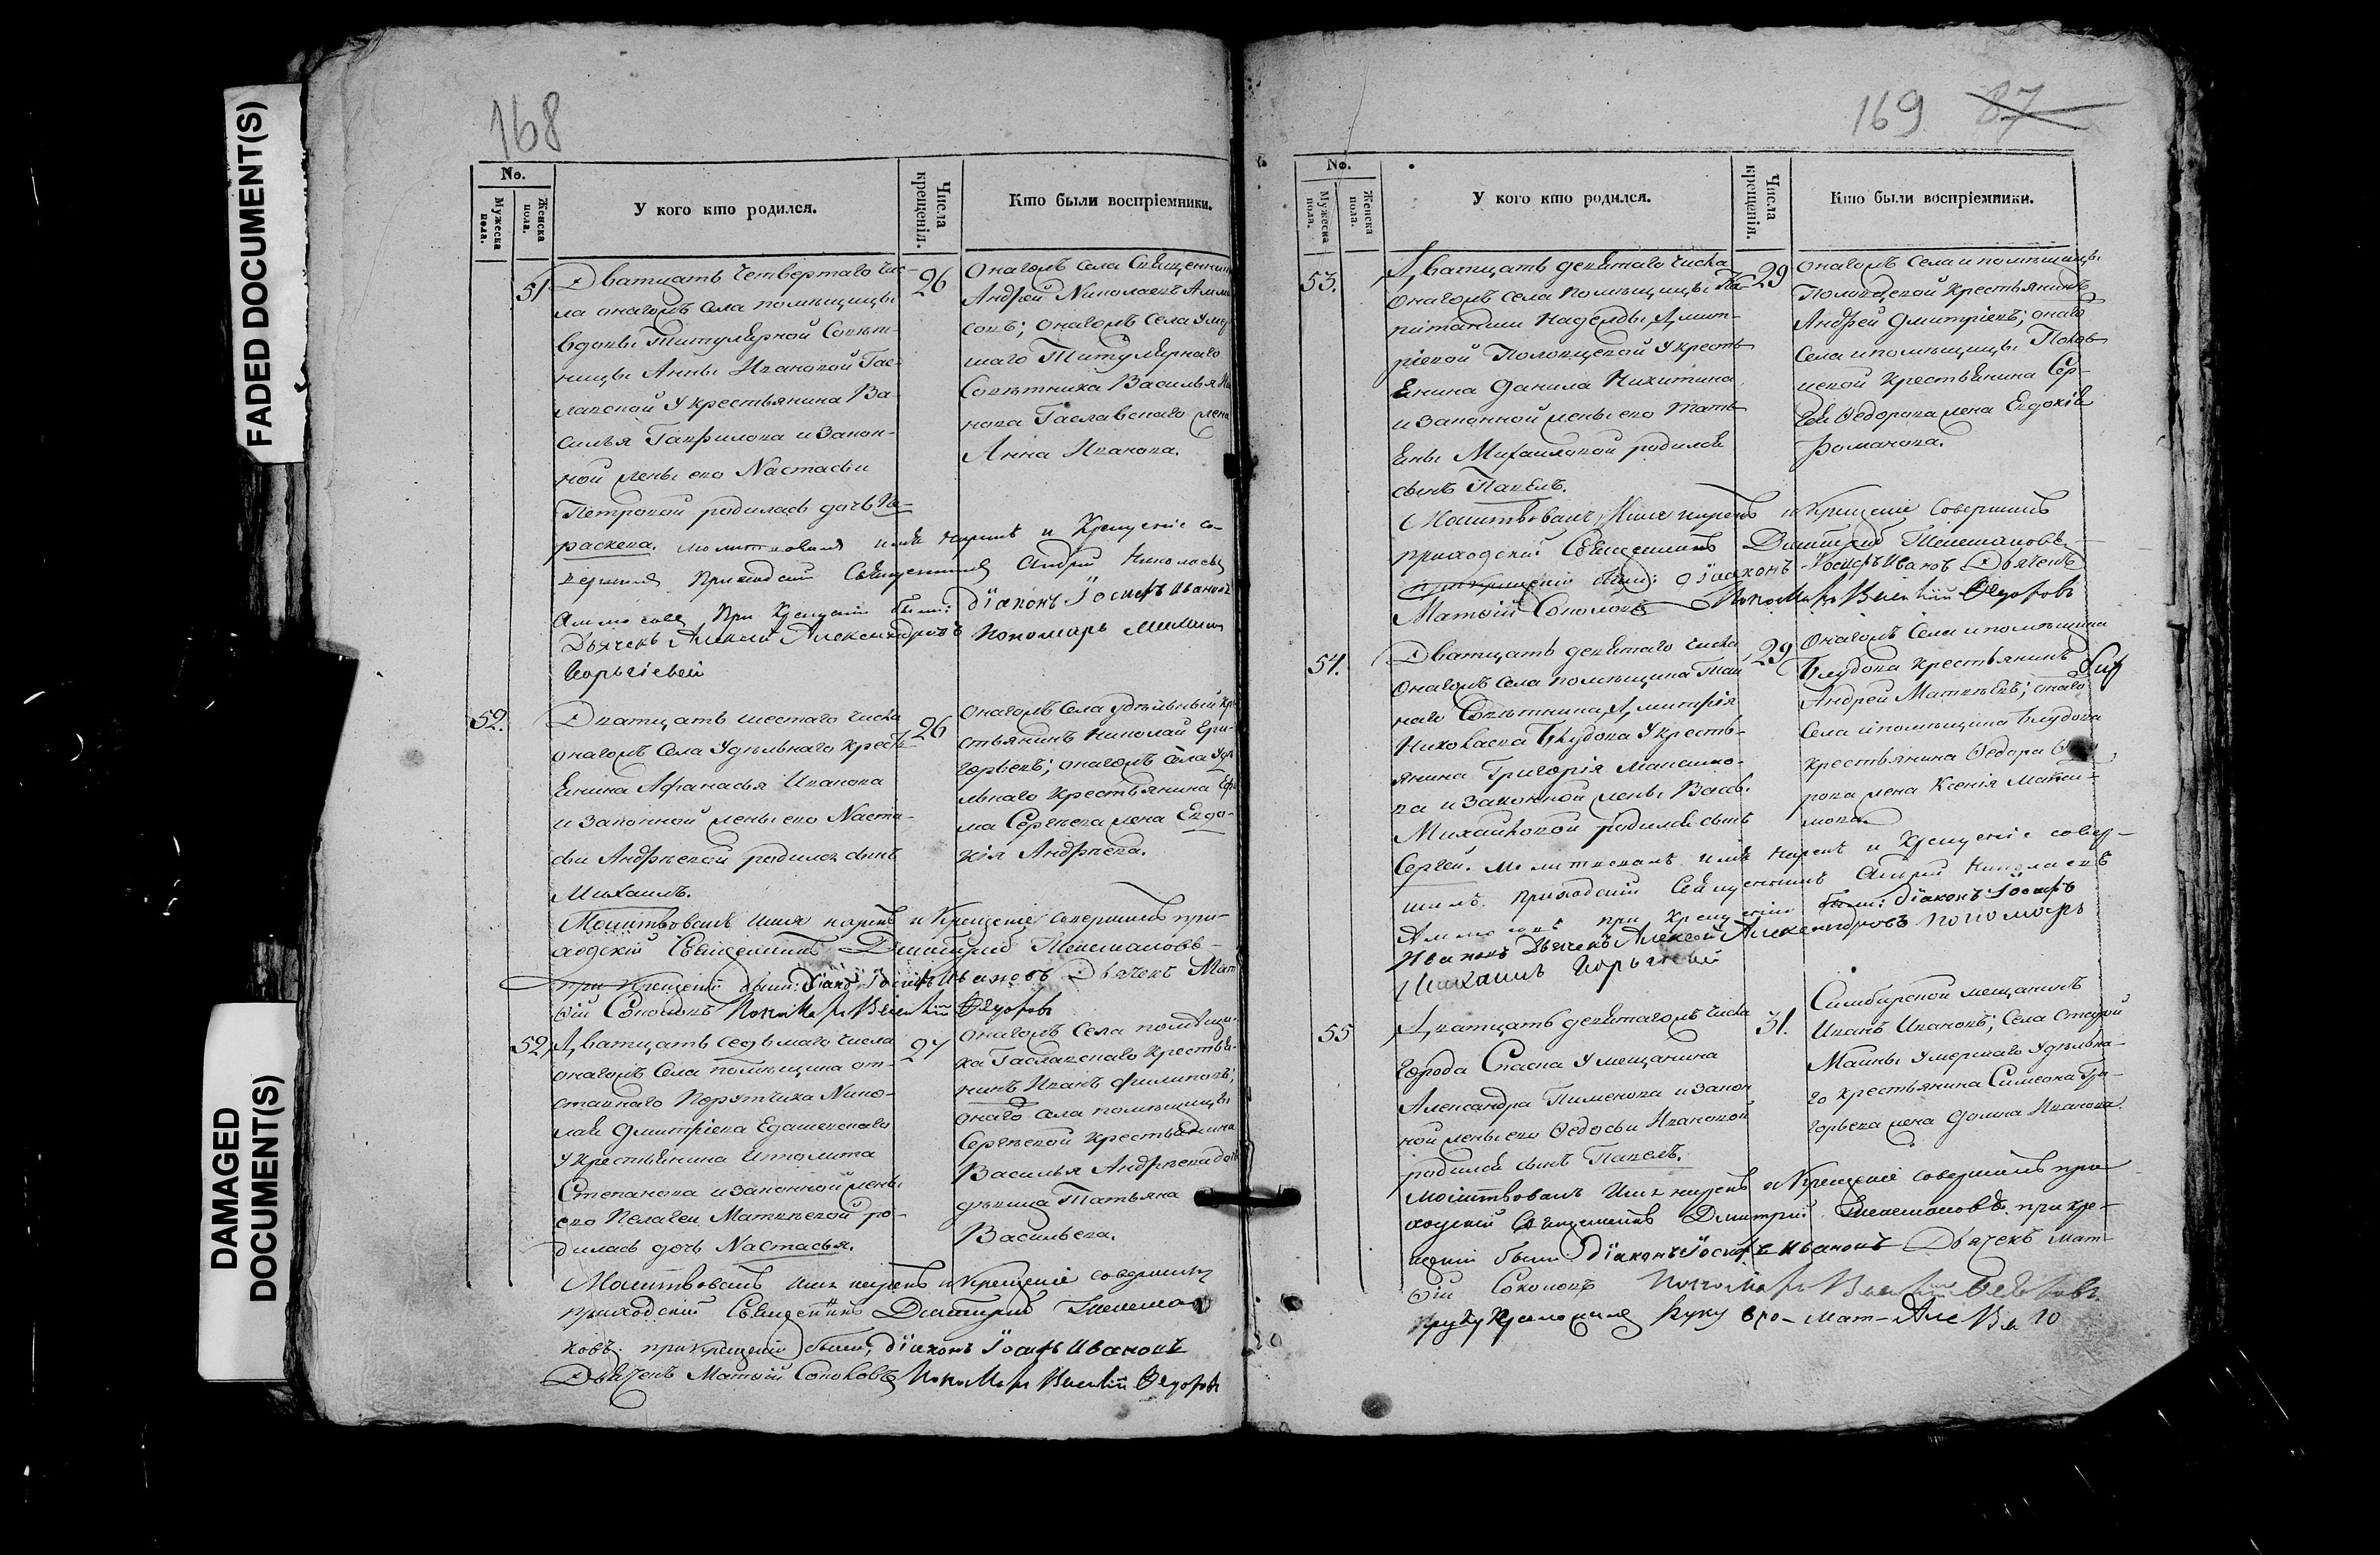 FADED DOCUMENT(S)
DAMAGED DOCUMENT(S)
168
No.
Мужеска пола.
Женска пола.
У кого кто родился.
Числа крещенія.
Кто были воспріемники.
51
Дватцать четвертаго чис-
ла онагомъ села помѣщицы
вдовы Титулярной Совѣт-
ницы Анны Ивановой Гас-
лавской у крестьянина Ва-
силья Гаврилова и закон-
ной жены его Настасьи
Петровой родилась дочь Па-
раскева. молитвовалъ имя нарекъ и Крещеніе со-
вершилъ Приходскій Священникъ Андрей Николаевъ
Аммосовъ При Крещеніи были: діаконъ Іосифъ Ивановъ
Дьячекъ Алексѣй Александровъ пономарь Михаилъ
26
Онагомъ села Священникъ
Андрей Николаевъ Аммо
совъ; онагомъ села умер
шаго Титулярнаго
Совѣтника Василья
Гаславскаго жена
Анна Иванова.
52.
Дватцать шестаго числа
онагомъ села удѣльнаго кресть-
янина Афанасья Иванова
и законной жены его Наста-
сьи Андрѣевой родился сынъ
Михаилъ.
Молитвовалъ имя нарекъ и Крещеніе совершилъ при-
ходскій Священникъ Дмитрій
при крещеніи были: діаконъ Іосифъ Ивановъ Дьячекъ Мат
ѳій Соколовъ Пономарь Василій Ѳедоровъ
26
онагомъ села удѣльный кре
стьянинъ Николай Гри-
горьевъ; онагомъ села удѣ
льнаго крестьянина
Сергѣева жена Евдо-
кія Андрѣева.
52
Дватцать седьмаго числа
онагомъ села помѣщика от-
ставнаго Порутчика Нико-
лая Дмитріева
у крестьянина Ипполита
Степанова и законной жены
его Пелагеи Матвѣевой ро-
дилась дочь Настасья.
Молитвовалъ имя нарекъ и Крещеніе совершилъ
приходскій Священникъ Дмитрій
при крещеніи были: діаконъ Іосифъ Ивановъ
Дьячекъ Матѳій Соколовъ Пономарь Василій Ѳедоровъ
27
онагомъ села помѣщи-
ка Гаславскаго крестья-
нинъ Иванъ Филиповъ;
онаго села помѣщицы
Сергѣевой крестьянина
Василья Андрѣева дочь
дѣвица Татьяна
Васильева.
169 87
No.
Мужеска пола.
Женска пола.
У кого кто родился.
Числа крещенія.
Кто были воспріемники.
53.
Дватцать девятаго числа
онагомъ села помѣщицы Ка-
питанши Надежды Дмит-
ріевой Половцевой у кресть-
янина Данила Никитина
и законной жены его Тать-
яны Михайловой родился
сынъ Павелъ.
Молитвовалъ, Имя нарекъ и Крещеніе совершилъ
приходскій Священникъ Дмитрій
при крещеніи были: діаконъ Іосифъ Ивановъ Дьячекъ
Матѳій Соколовъ Пономарь Василій Ѳедоровъ
29
онагомъ села и помѣщицы
Половцевой крестьянинъ
Андрей Дмитріевъ; онаго
села и помѣщицы Полов-
цевой крестьянина Сер-
гея Ѳедорова жена Евдокія
Романова.
54.
Дватцать девятаго числа
онагомъ села помѣщика Тай-
наго Совѣтника Дмитрія
Николаева Блудова у кресть-
янина Григорія Максимо-
ва и законной жены Васы
Михайловой родился сынъ
Сергей. молитвовалъ имя нарекъ и Крещеніе совер-
шилъ приходскій Священникъ Андрей Николаевъ
Аммосовъ при Крещеніи были: діаконъ Іосифъ
Ивановъ Дьячекъ Алексей Александровъ пономарь
Михаилъ
29
онагомъ села и помѣщика
Блудова крестьянинъ
Андрей Матвѣевъ; онаго
села и помѣщика Блудова
крестьянина Ѳедора
жена Ксенія
55
Дватцать девятагомъ числа
города Спаска у мещанина
Александра Пименова и закон
ной жены его Ѳедосьи Ивановой
родился сынъ Павелъ.
молитвовалъ имя нарекъ и Крещеніе совершилъ при-
ходскій Священникъ Дмитрій при кре-
щеніи были діаконъ Іосифъ Ивановъ Дьячекъ Мат-
ѳій Соколовъ Пономарь Василій Ѳедоровъ.
31.
Симбирской мещанинъ
Иванъ Ивановъ; села Старой
Майны умершаго удѣльна-
го крестьянина Симеона Гри-
горьева жена Домна Иванова.